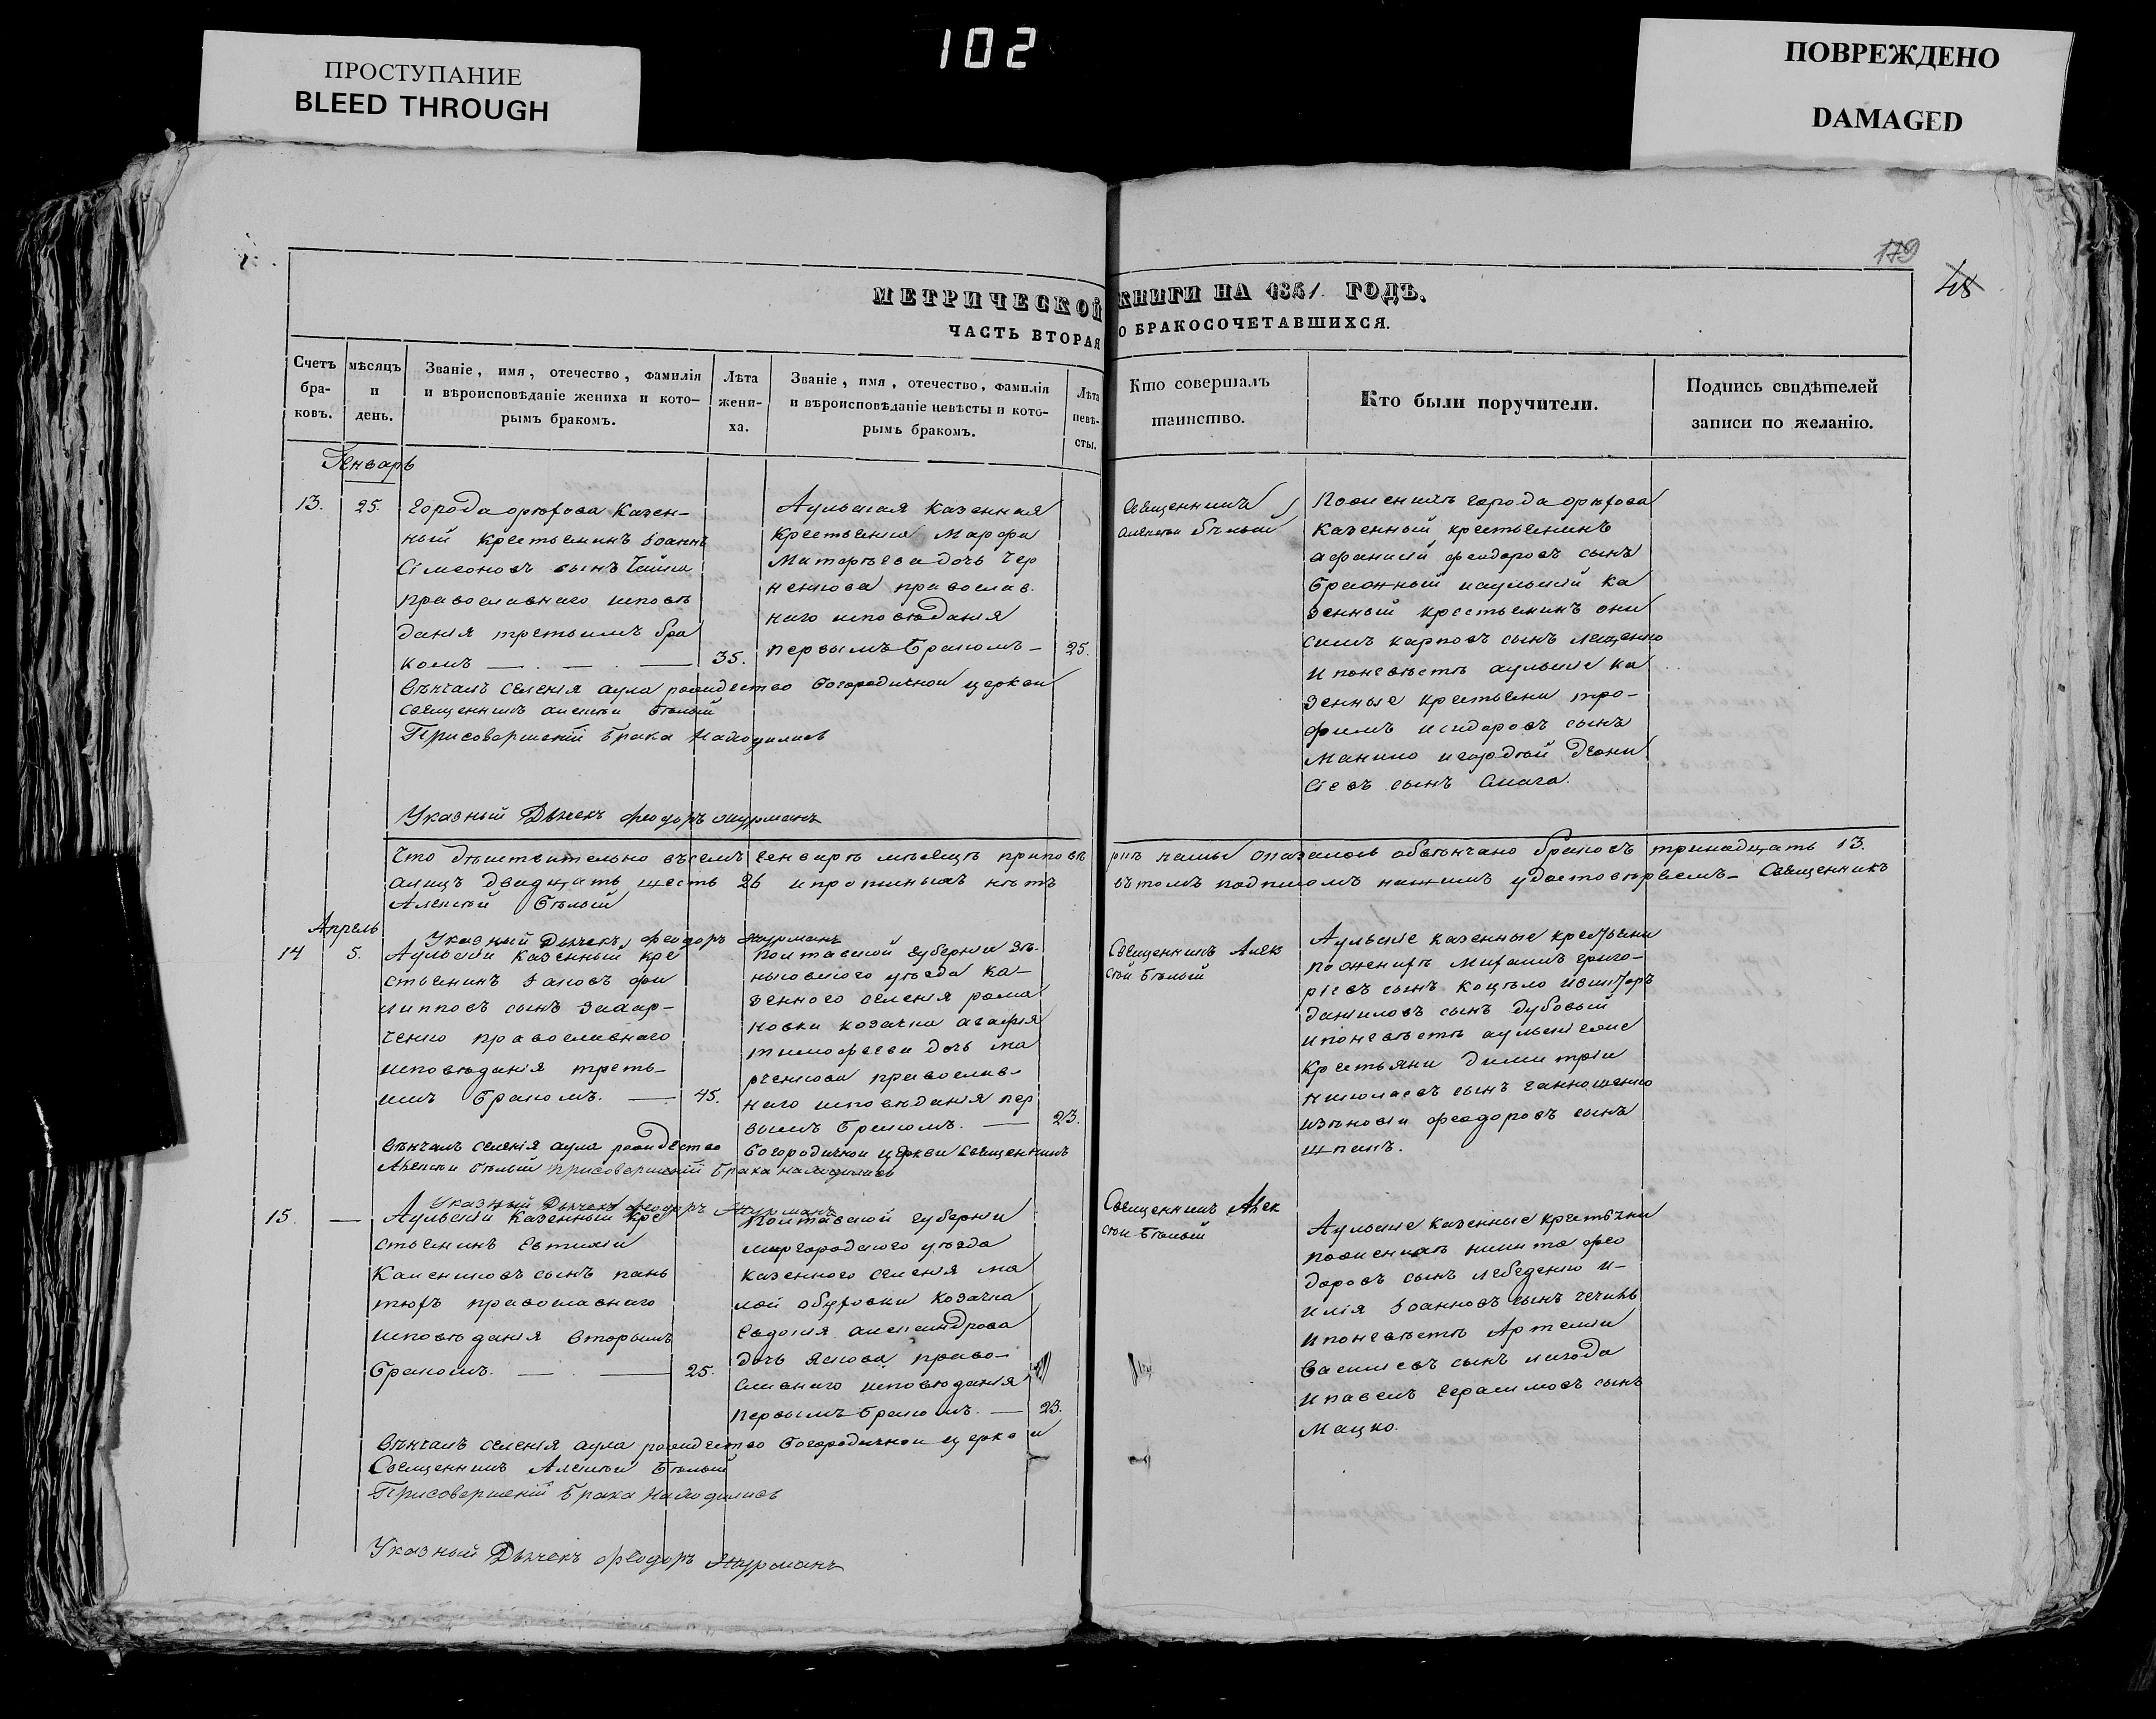 102
ПРОСТУПАНИЕ
BLEED THROUGH
ПОВРЕЖДЕНО
DAMAGED
179
МЕТРИЧЕСКОЙ КНИГИ НА 1851 ГОДЪ.
ЧАСТЬ ВТОРАЯ О БРАКОСОЧЕТАВШИХСЯ.
Счетъ
бра-
ковъ.
мѣсяцъ
и
день.
Званіе, имя, отечество, фамилія
и вѣроисповѣданіе жениха и кото-
рымъ бракомъ.
Лѣта
жени-
ха.
Званіе, имя, отечество, фамилія
и вѣроисповѣданіе невѣсты и кото-
рымъ бракомъ.
Лѣта
невѣ-
сты.
Кто совершалъ
таинство.
Кто были поручители.
Подпись свидѣтелей
записи по желанію.
Генварь
13.
25.
города орѣхова казен-
ный крестьянинъ Іоаннъ
Сімеоновъ сынъ
православнаго исповѣ
данія третьимъ бра
комъ
35.
Аульская казенная
крестьянка Марфа
дочь Чер
ненкова православ.
наго исповѣданія
первымъ бракомъ
25.
Священникъ
Алексій Бѣлый
По женихѣ города орѣхова
казенный крестьянинъ
афанасій феодоровъ сынъ
и аульскій ка
зенный крестьянинъ они
симъ карповъ сынъ лященко
и по невѣстѣ аульскіе ка
зенные крестьяне тро-
фимъ исидоровъ сынъ
Манико и гордѣй Діони
сіевъ сынъ
Вѣнчалъ селенія аула рождество богородичной церкви
священникъ алексѣй бѣлый
При совершеніи брака находились
Указный Дьячекъ феодоръ журманъ
Что дѣйствительно въ семъ генварѣ мѣсяцѣ приповѣ
ркѣ нашей оказалось обвѣнчано браковъ тринадцать 13.
а лицъ двадцать шесть 26 и пропиныхъ нѣтъ
въ томъ подписомъ нашимъ удостовѣряемъ Священникъ
Алексѣй Бѣлый
Указный Дьячекъ феодоръ журманъ
Апрель
14
5.
Аульскій казенный кре
стьянинъ Іаковъ фи
липповъ сынъ Захар-
ченко православнаго
исповѣданія треть-
имъ бракомъ.
45.
Полтавской губерніи Зѣ-
ньковского уѣзда ка-
зенного селенія рома
новки козачка агафія
тимофеева дочь ма
рченкова православ-
наго исповѣданія пер
вымъ бракомъ.
23.
Священникъ Алек
сѣй Бѣлый
Аульскіе казенные крестьяни
по женихѣ Михаилъ григо-
ріевъ сынъ коцѣло и викторъ
даніиловъ сынъ дубовый
и по невѣстѣ аульскіе же
крестьяни димитрій
николаевъ сынъ
феодоровъ сынъ
Вѣнчалъ селенія аула рождество богородичной церкви священникъ
Алексѣй Бѣлый при совершеніи брака находились
Указный Дьячекъ феодоръ журманъ
15.
Аульскій казенный кре
стьянинъ Евтихій
сынъ пань
православнаго
исповѣданія вторымъ
бракомъ.
25.
Полтавской губерніи
миргородского уѣзда
казенного селенія ма
лой обуховки козачка
Евдокія александрова
дочь право-
славнаго исповѣданія
первымъ бракомъ.
23.
Священникъ Алек
сѣй Бѣлый
Аульскіе казенные крестьяни
по женихѣ никита фео
доровъ сынъ лебеденко и
илія Іоанновъ сынъ
и по невѣстѣ Артемій
Василіевъ сынъ
и павелъ герасимовъ сынъ
Мацко.
Вѣнчалъ селенія аула рождество богородичной церкви
Священникъ Алексѣй Бѣлый
При совершеніи брака находились
Указный Дьячекъ феодоръ журманъ